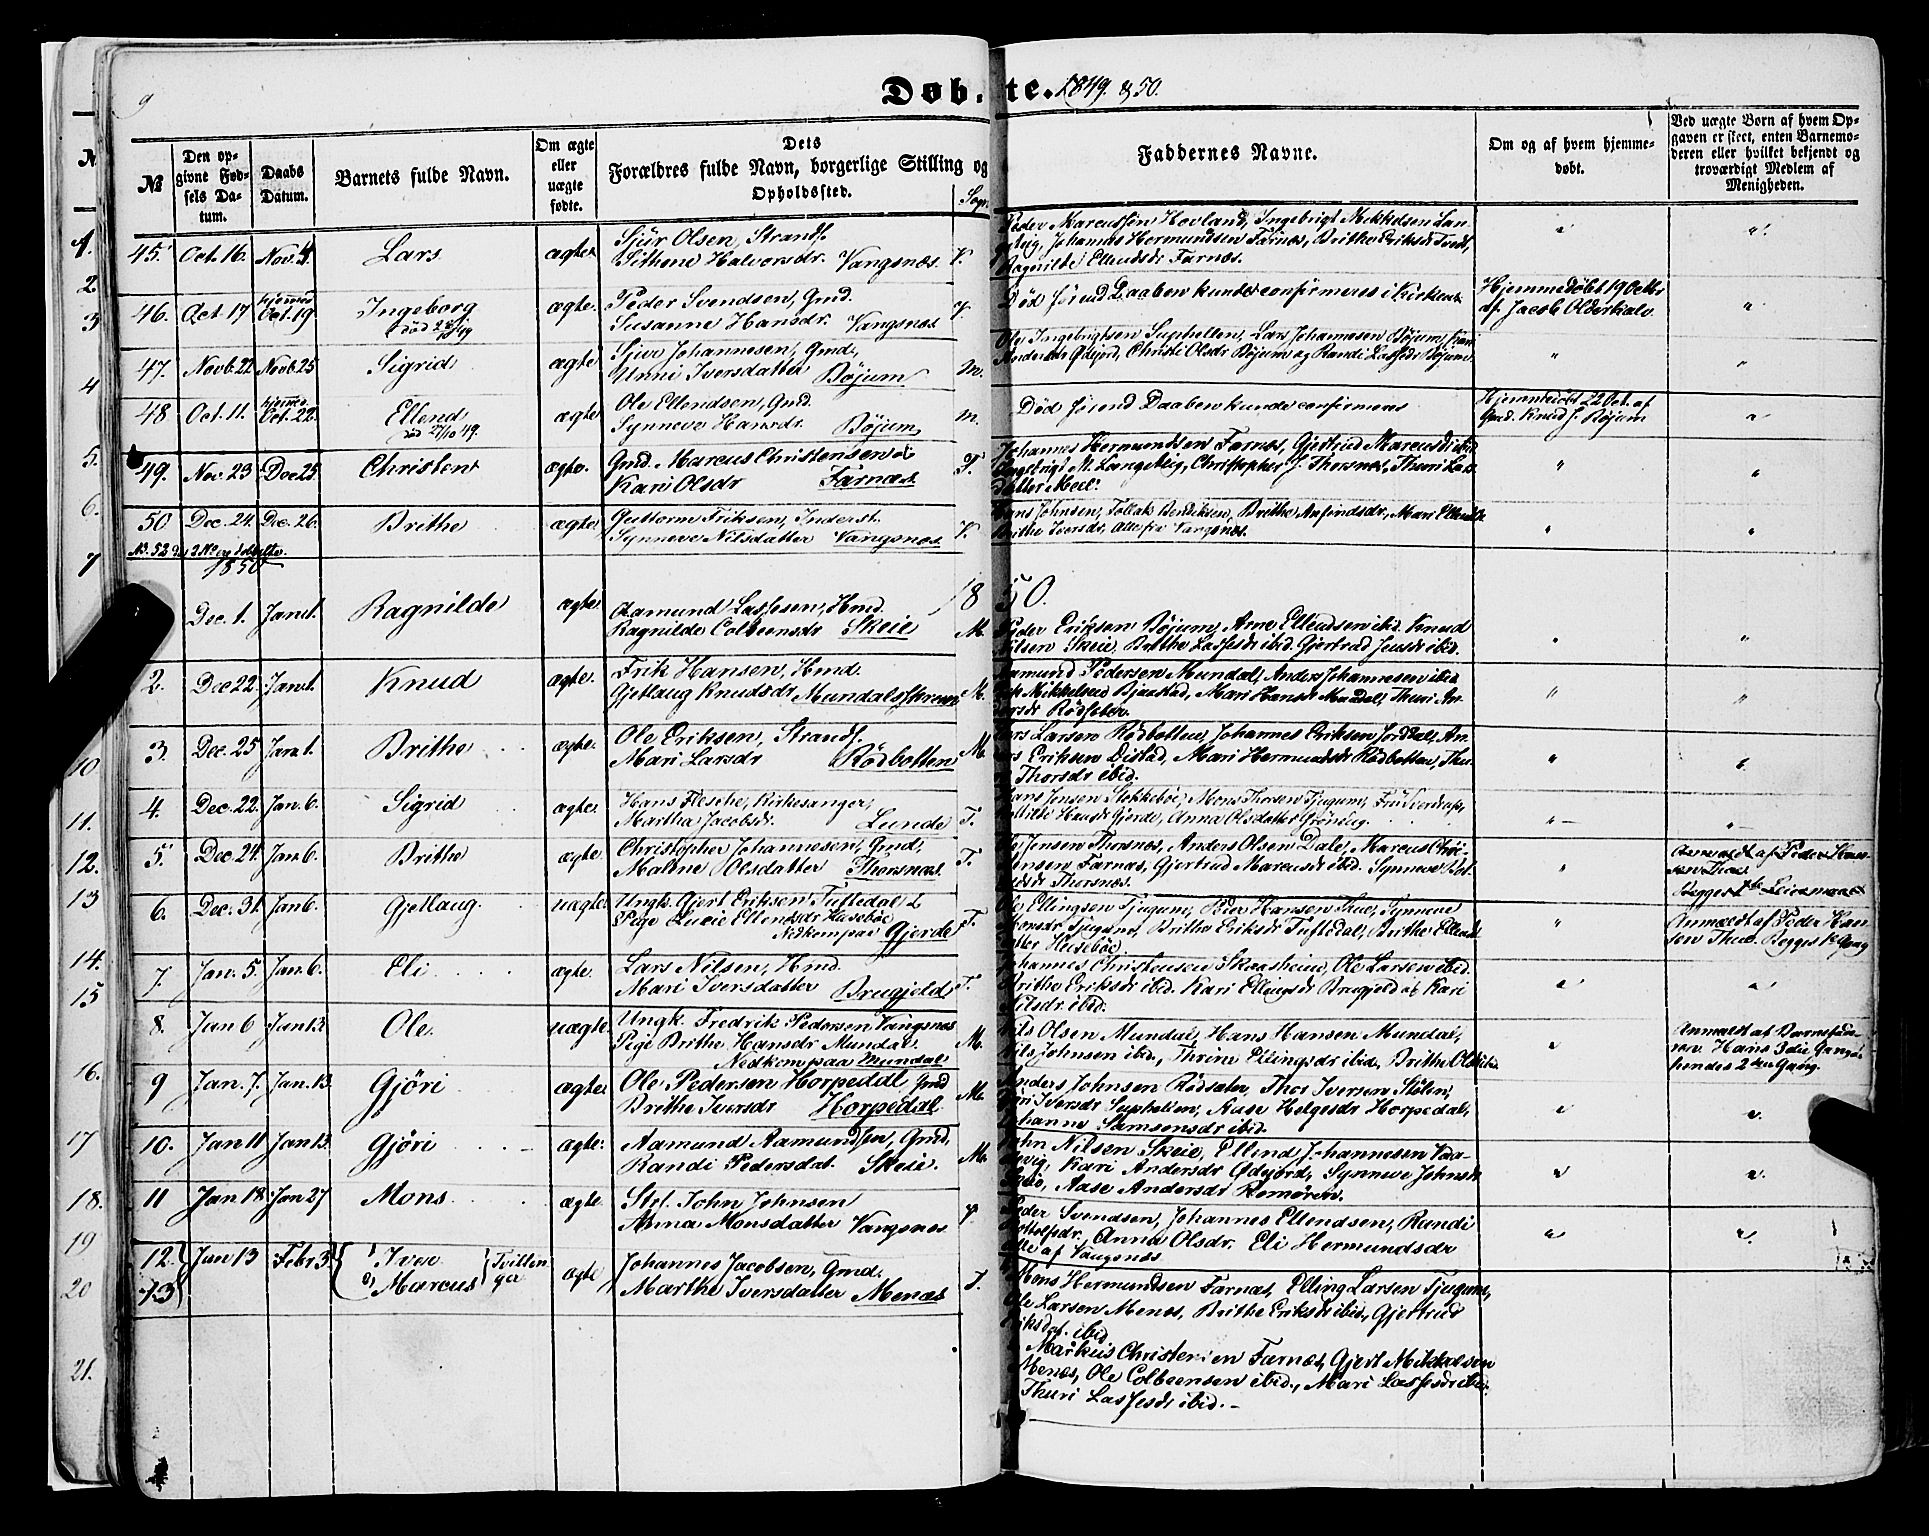 9
Døbte. 1849. & 50.
№
Den opgivne Fødsels Datum.
Daabs Datum.
Barnets fulde Navn.
Om ægte eller uægte fødte.
Dets Forældres fulde Navn, borgerlige Stilling og Opholdssted.
Sogn
Faddernes Navne.
Om og af hvem hjemmedøbt.
Ved uægte Børn af hvem Opgaven er skeet, enten Barnemoderen eller hvilket bekjendt og troværdigt Medlem af Menigheden.
45. Oct. 16. Nov. 4. Lars ægte. Sjür Olsen, Strands. V.
Sithene Halvorsdr. Vangsnæs.
Peder Marcussen Hovland, Ingebrigt Mikkelsen Lan-
Johannes Hermundsen Farnæs, Brithe Eriksdr
Ragnilde Ellendsdr Farnæs.
46. Oct. 17 hjemmed. Oct. 19. Ingeborg ægte. Peder Svendsen, Gmd. V.
Susanne Hansdr. Vangsnæs
Død førend Daaben kunde confirmeres i Kirken.
Hjemmedøbt 19 Octbr
af Jacob Olderhalv
47. Novb. 22 Novb. 25 Sigrid ægte Sjur Johannesen, Gmd. M.
Unni Iversdatter Bøjum
Ole Ingebrigtsen Suphellen, Lars Johannesen Bøjum,
Christi Olsdr Bøjum og Randi Lassesdr Bøjum.
48 Oct. 11. hjemmed. Oct. 22. Ellend ægte Ole Ellendsen, Gmd. M.
død 27/10 49.
Synneve Hansdr. Bøjum
Død førend Daaben kunde confirmeres
Hjemmedøbt 22 Oct. af
Gmd. Knud J. Bøjum
49. Nov. 23 Dec 25 Christen ægte. Gmd. Marcus Christensen & F.
Kari Olsdr Farnæs
Johannes Hermundsen Farnæs, Gjertrud Marcusdr ibid
Ingebrigt M. Langeteig, Christopher J. Thorsnæs, Thuri Las-
datter
50 Dec. 24. Dec. 26. Brithe ægte Guttorm Eriksen, Inderst. V.
Synneve Nilsdatter Vangsnæs
Hans Johnsen, Tollak Bendiksen, Brithe Anfindsdr, Mari Ellendsdr
Brithe Iversdr, Alle fra Vangsnæs.
1850
1850.
Dec. 1. Jan 1. Ragnilde ægte Aamund Lassesen, Hmd. M.
Ragnilde Colbeensdr Skeie
Peder Eriksen Bøjum, Arne Ellendsen ibid. Knud
Nilsen Skeie, Brithe Lassesdr ibid. Gjertrud Jensdr ibid.
2. Dec 22. Jan 1. Knud ægte. Erik Hansen, Hmd. M.
Gjetlaug Knudsdr Mundalsstræm
Aamund Pedersen Mundal, Anders Johannesen ibid
Mikkelsen Bjaastad, Mari Hansdr Mundal, Thuri An-
dersdr Rødseter.
3. Dec. 25 Jan 1. Brithe ægte. Ole Eriksen, Strands. M.
Mari Larsdr Rødbotten
Lars Larsen Rødbotten, Johannes Eriksen Jordal, An-
ders Eriksen Distad, Mari Hermundsdr Rødbotten, Thu-
ri Thorsdr ibid.
4. Dec. 22. Jan. 6. Sigrid ægte. Hans Flesche, Kirkesanger, F.
Martha Jacobsdr. Lunde
Hans Jensen Stokkebøe, Mons Thorsen Tjugum,
Hansdr Gjerde, Anna Olsdatter Grøning.
5. Dec. 24. Jan 6. Brithe ægte Christopher Johannesen, Gmd. F.
Malene Olsdatter Thorsnæs
Ole Jensen Thorsnæs, Anders Olsen Dale, Marcus Chri-
stensen Farnæs, Gjertrud Marcusdr ibid. Synneve
Thorsnæs.
Anmeldt af Peder Han-
sen Thue.
Begges 1ste Leiermaal
6. Dec. 31. Jan 6. Gjetlaug uægte. Ungk. Gjert Eriksen Tuftedal & F.
Pige Lucie Ellendsdr Husebøe
Nedkom paa Gjerde
Ole Ellingsen Tjugum, Peder Hansen Thue, Synneve
Monsdr Tjugum, Brithe Eriksdr Tuftedal, Brithe Ellends-
datter Husebøe
Anmeldt af Peder Han-
sen Thue. Begges 1te Gang
7. Jan. 5. Jan. 6. Eli ægte. Lars Nilsen, Hmd. F.
Mari Iversdatter Brugjeld
Johannes Christensen Skaasheim, Ole Larsen ibid.
Brithe Eriksdr ibid. Kari Ellingsdr Brugjeld og Kari
Nilsdr ibid.
8. Jan 6 Jan 13. Ole. uægte. Ungk. Fredrik Pedersen Vangsnæs M.
Pige Brithe Hansdr Mundal.
Nedkom paa Mundal
Nils Olsen Mundal, Hans Hansen Mundal,
Nils Johnsen ibid., Thrine Ellingsdr ibid., Brithe Olsdr ibid.
Anmeldt af Barnefade-
ren. Hans 3die Gang
hendes 2den Gang.
9 Jan. 7. Jan. 13. Gjöri ægte Ole Pedersen Horpedal Gmd M.
Brithe Iversdr Horpedal
Anders Johnsen Rødsæter, Thor Iversen Stølen,
Iversdr Suphellen, Aase Helgesdr Horpedal,
Johanne Samsonsdr ibid.
10. Jan 11 Jan 13. Gjöri ægte. Aamund Aamundsen, Gmd. M.
Randi Pedersdat. Skeie.
John Nilsen Skeie, Ellend Johannesen Vaa-
tevig, Kari Andersdr Ødejord, Synneve Johnsdr
Skeie, Aase Andersdr Romøren.
11 Jan 18. Jan 27 Mons ægte. Stf. John Johnsen V.
Anna Monsdatter Vangsnæs
Peder Svendsen, Johannes Ellendsen, Randi
Anna Olsdr. Eli Hermundsdr
Alle af Vangsnæs
12. 13 Jan 13 Febr. 3 1) Iver 2) Marcus Tvillinger ægte Johannes Jacobsen, Gmd. F.
Marthe Iversdatter Menæs
Mons Hermundsen Farnæs, Elling Larsen Tjugum,
Ole Larsen Menæs, Brithe Eriksdr ibid., Gjertrud
Eriksdat. ibid
Markus Christensen Farnæs, Gjert Mikkelsen
Menæs, Ole Colbeensen ibid., Mari Lassesdr ibid.
Thuri Lassesdr ibid.
1.
2
3
4
5.
6.
7
10
11.
12.
13
14.
15
16.
17
18.
19
20
21.